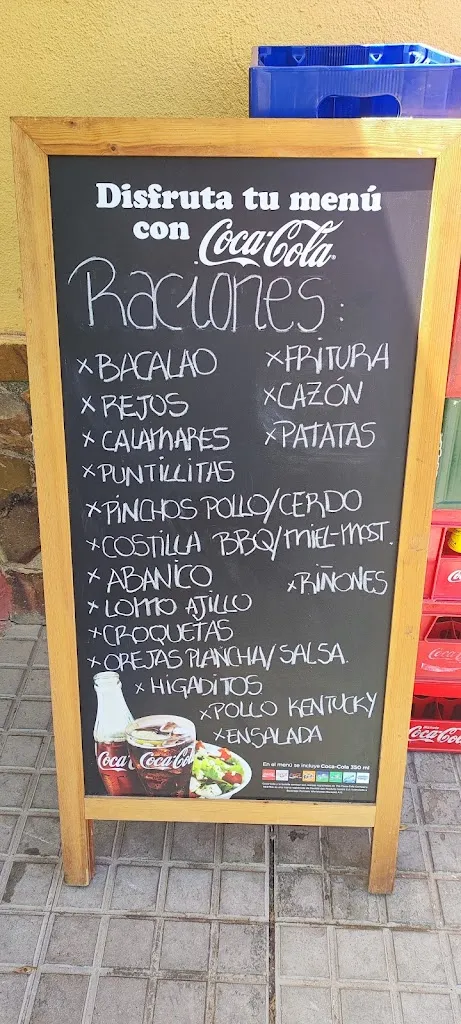 Disfruta tu menú
con Coca-Cola
Raciones:
×BACALAO ×FRITURA
×REJOS ×CAZÓN
×CALAMARES ×PATATAS
×PUNTILLITAS
×PINCHOS POLLO/CERDO
×COSTILLA BBQ/MIEL-MOST.
×ABANICO ×RIÑONES
×LOMO AJILLO
×CROQUETAS
×OREJAS PLANCHA/SALSA.
×HIGADITOS
×POLLO KENTUCKY
×ENSALADA
En el menú se incluye Coca-Cola 350 ml
Coca-Cola
Coca-Cola
Coca-Cola